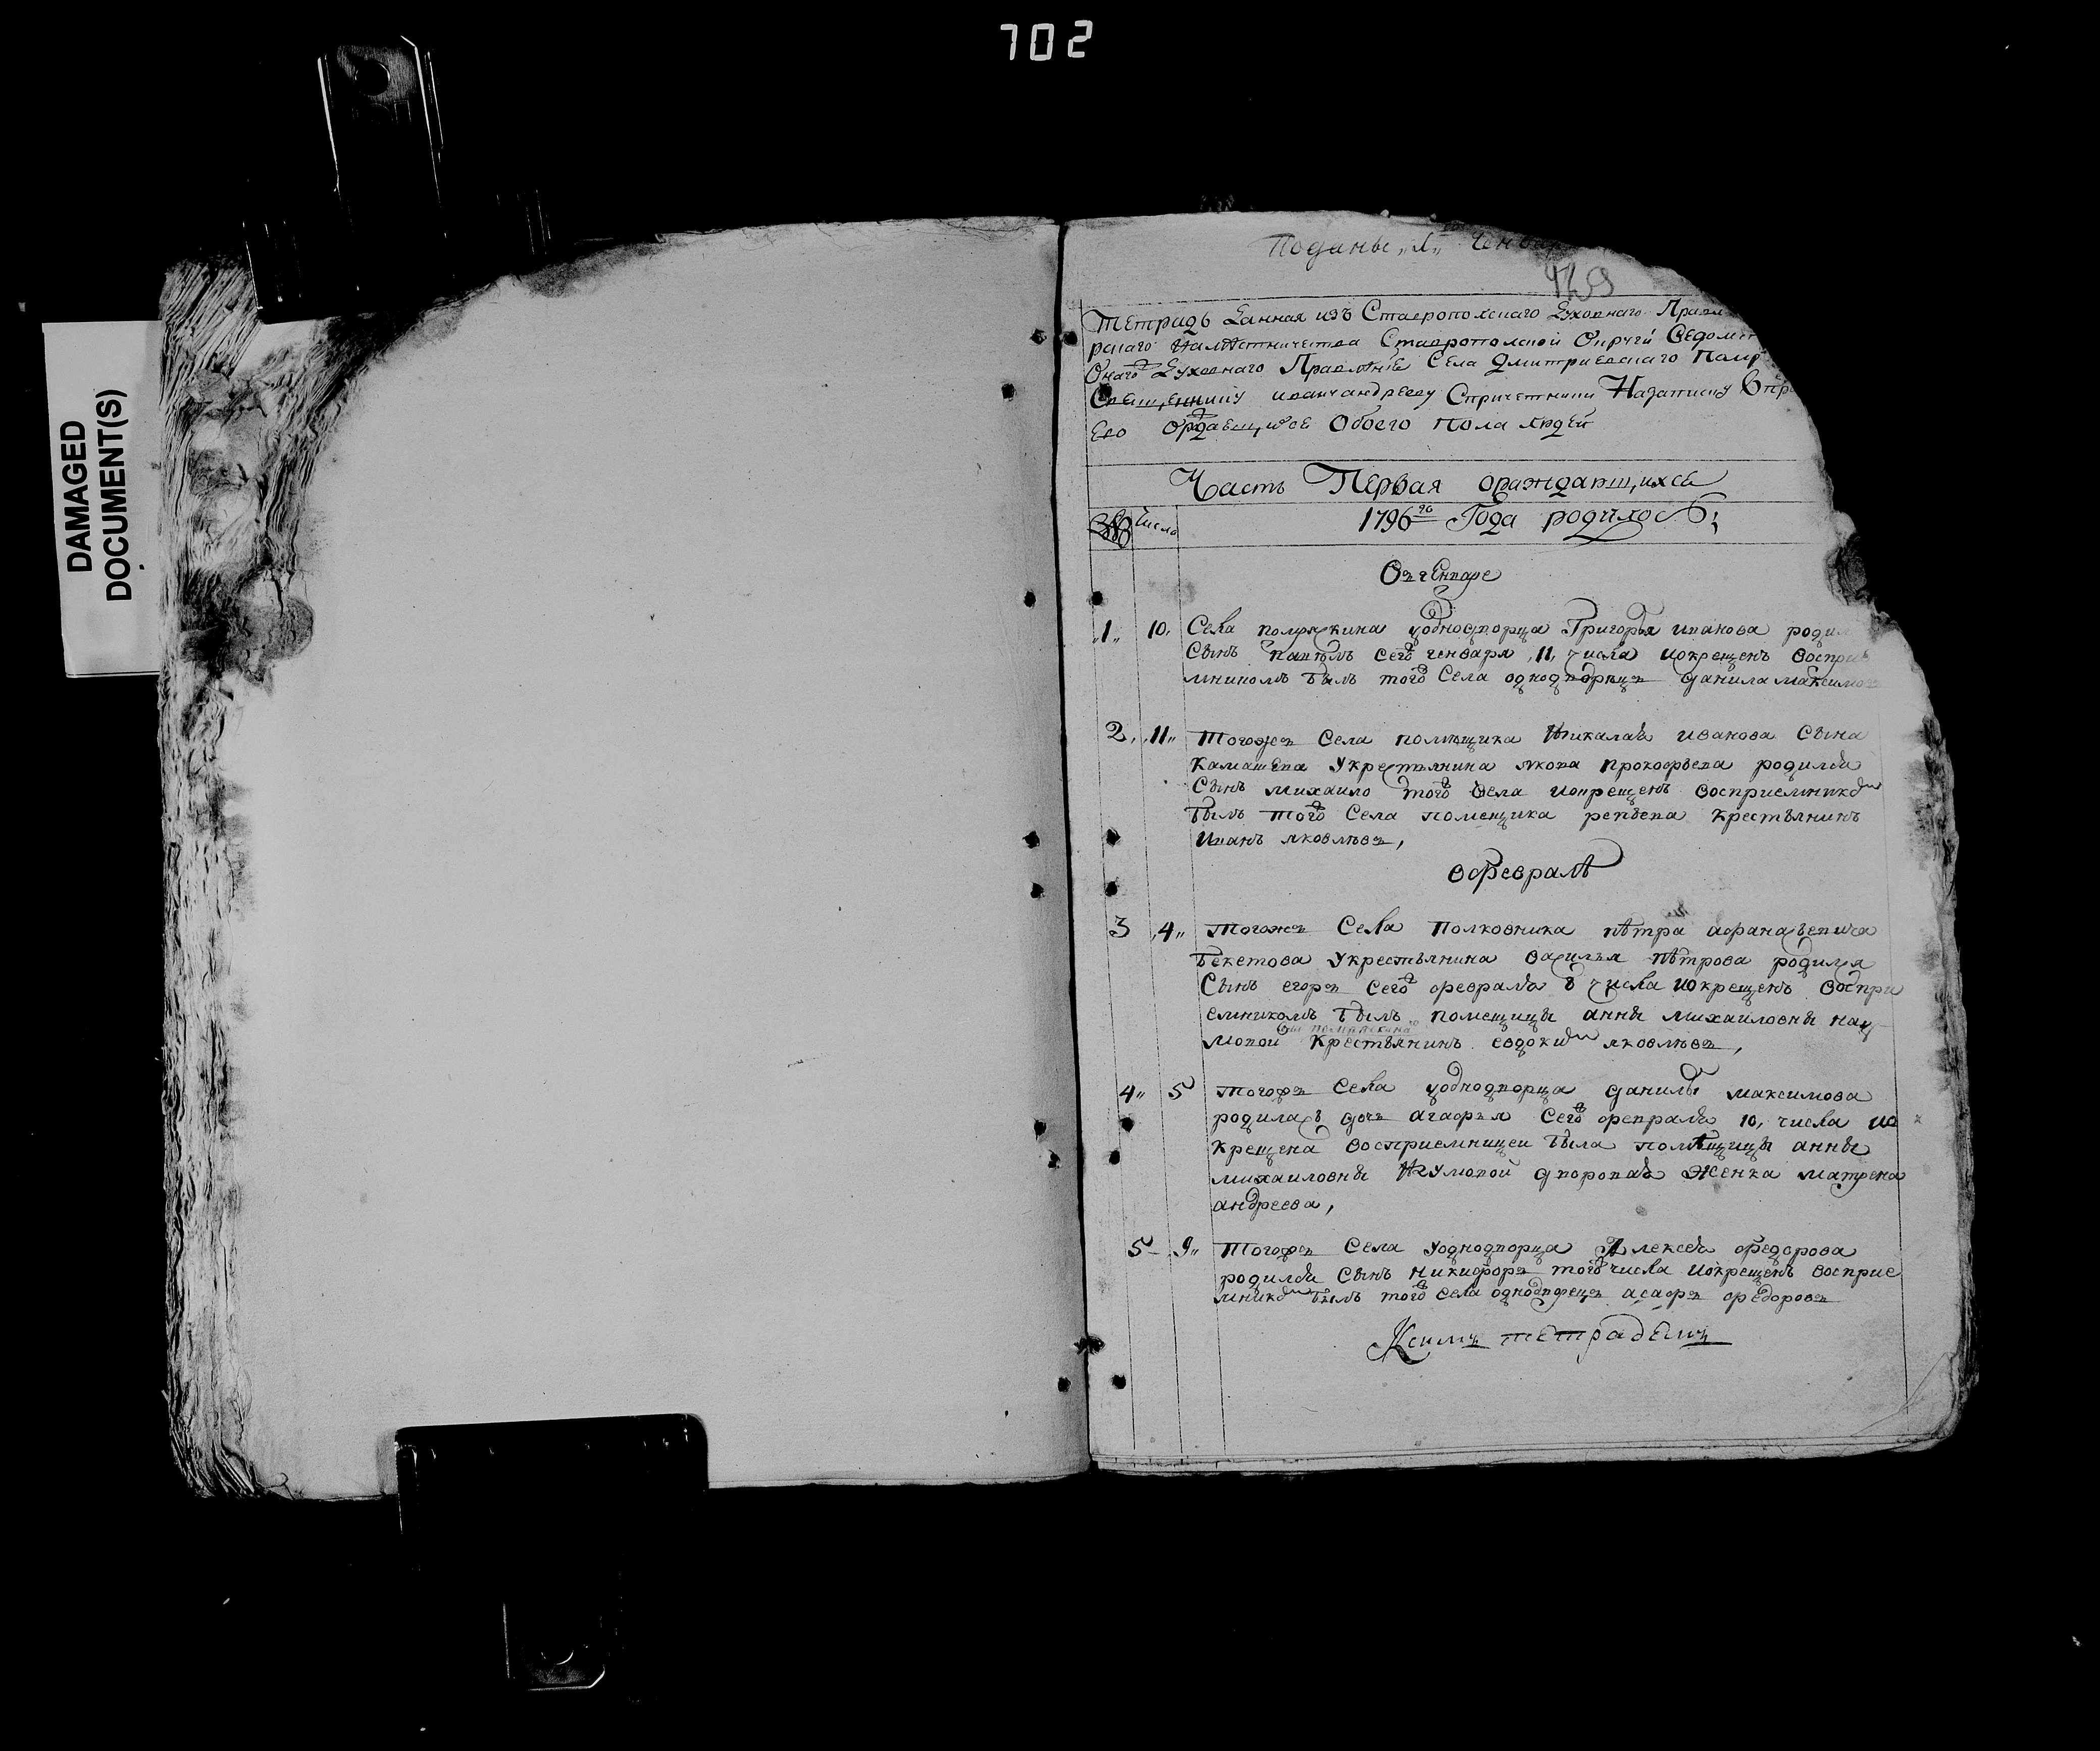 702
DAMAGED
DOCUMENT(S)
Поданы „1„ генвар
Тетрадь Данная изъ Ставропольскаго Духовнаго Правл
рскаго намѣстничества Ставропольской Округи Ведомст
Онаго Духовнаго Правленіе Села Дмитриевскаго Помр
Священнику ивану андрееву Спричетники Назаписку
Ево Ородившихсе Обоего пола людей
Часть Первая ораждающихся
Число 1796го Года родилось;
Въ генваре
„1„ 10, Села помряскина уоднодворца Григорья иванова родил
Сынъ павелъ сего генваря „11„ числа июкрещенъ восприе
мникомъ былъ того Села однодворецъ данила максимовъ
2„ „11„ Тогожъ Села помѣщика Николая иванова Сына
Камашева укрестьянина якова прокофьева родился
Сынъ михаило того числа июкрещенъ восприемником
былъ того Села помещика репьева крестьянинъ
Иванъ яковлѣвъ,
Вфевралѣ
3 „4„ Тогожъ Села Полковника пѣтра афанасьевича
Бекетова укрестьянина василья пѣтрова родился
Сынъ егоръ сего февраля 8 числа июкрещенъ воспри
емникомъ былъ помещицы анны михаиловны нау
мовой крестьянинъ евдоким яковлѣвъ,
4„ 5 Тогожъ Села уоднодворца данилы максимова
родилась дочь агафья сего февраля 10, числа ию
крещена восприемницеи была помѣщицы анны
михаиловны Наумовой дворовая женка матрена
андреева,
5 9„ Тогожъ Села уоднодворца Алексея федорова
родился Сынъ никифоръ того числа июкрещенъ восприе
мником былъ того Села однодворецъ асафъ федоровъ
Ксимъ тетрадемъ